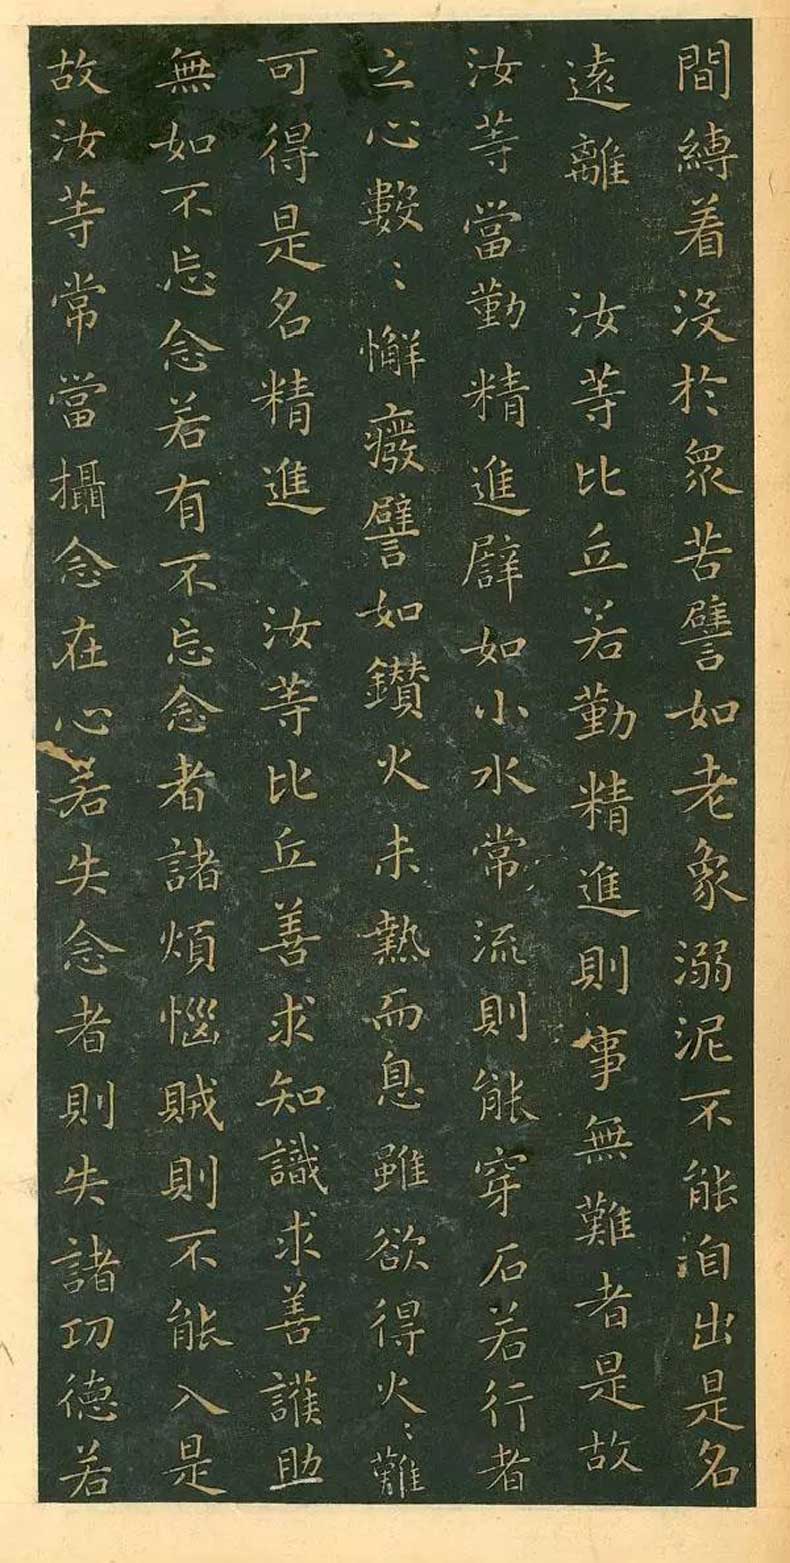 間縛着沒於衆苦譬如老象溺泥不能自出是名
遠離 汝等比丘若勤精進則事無難者是故
汝等當勤精進譬如小水常流則能穿石若行者
之心數〻懈癈譬如鑚火未熱而息雖欲得火〻難
可得是名精進 汝等比丘善求知識求善護助
無如不忘念若有不忘念者諸煩惱賊則不能入是
故汝等常當攝念在心若失念者則失諸功德若